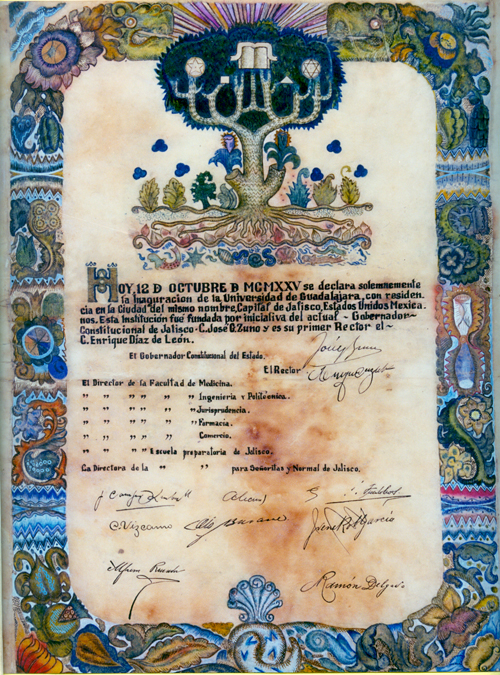 HOY, 12 D OCTUBRE D MCMXXV se declara solemnemente
la inaguracion de la Universidad de Guadalajara, con residen-
cia en la Ciudad del mismo nombre, Capital de Jalisco, Estados Unidos Mexica
nos. Esta institucion fue fundada por iniciativa del actual - Gobernador -
Constitucional de Jalisco - C. José G. Zuno y es su primer Rector el -
C. Enrique Díaz de León.
El Gobernador Constitucional del Estado.
El Rector
El Director de la Facultad de Medicina.
" " " " " Ingenieria y Politécnica.
" " " " " Jurisprudencia.
" " " " " Farmacia.
" " " " " Comercio.
" " " " Escuela preparatoria de Jalisco.
La Directora de la " " para Señoritas y Normal de Jalisco.
C. Vizcarno
Irene R. García
Ramón Delgado